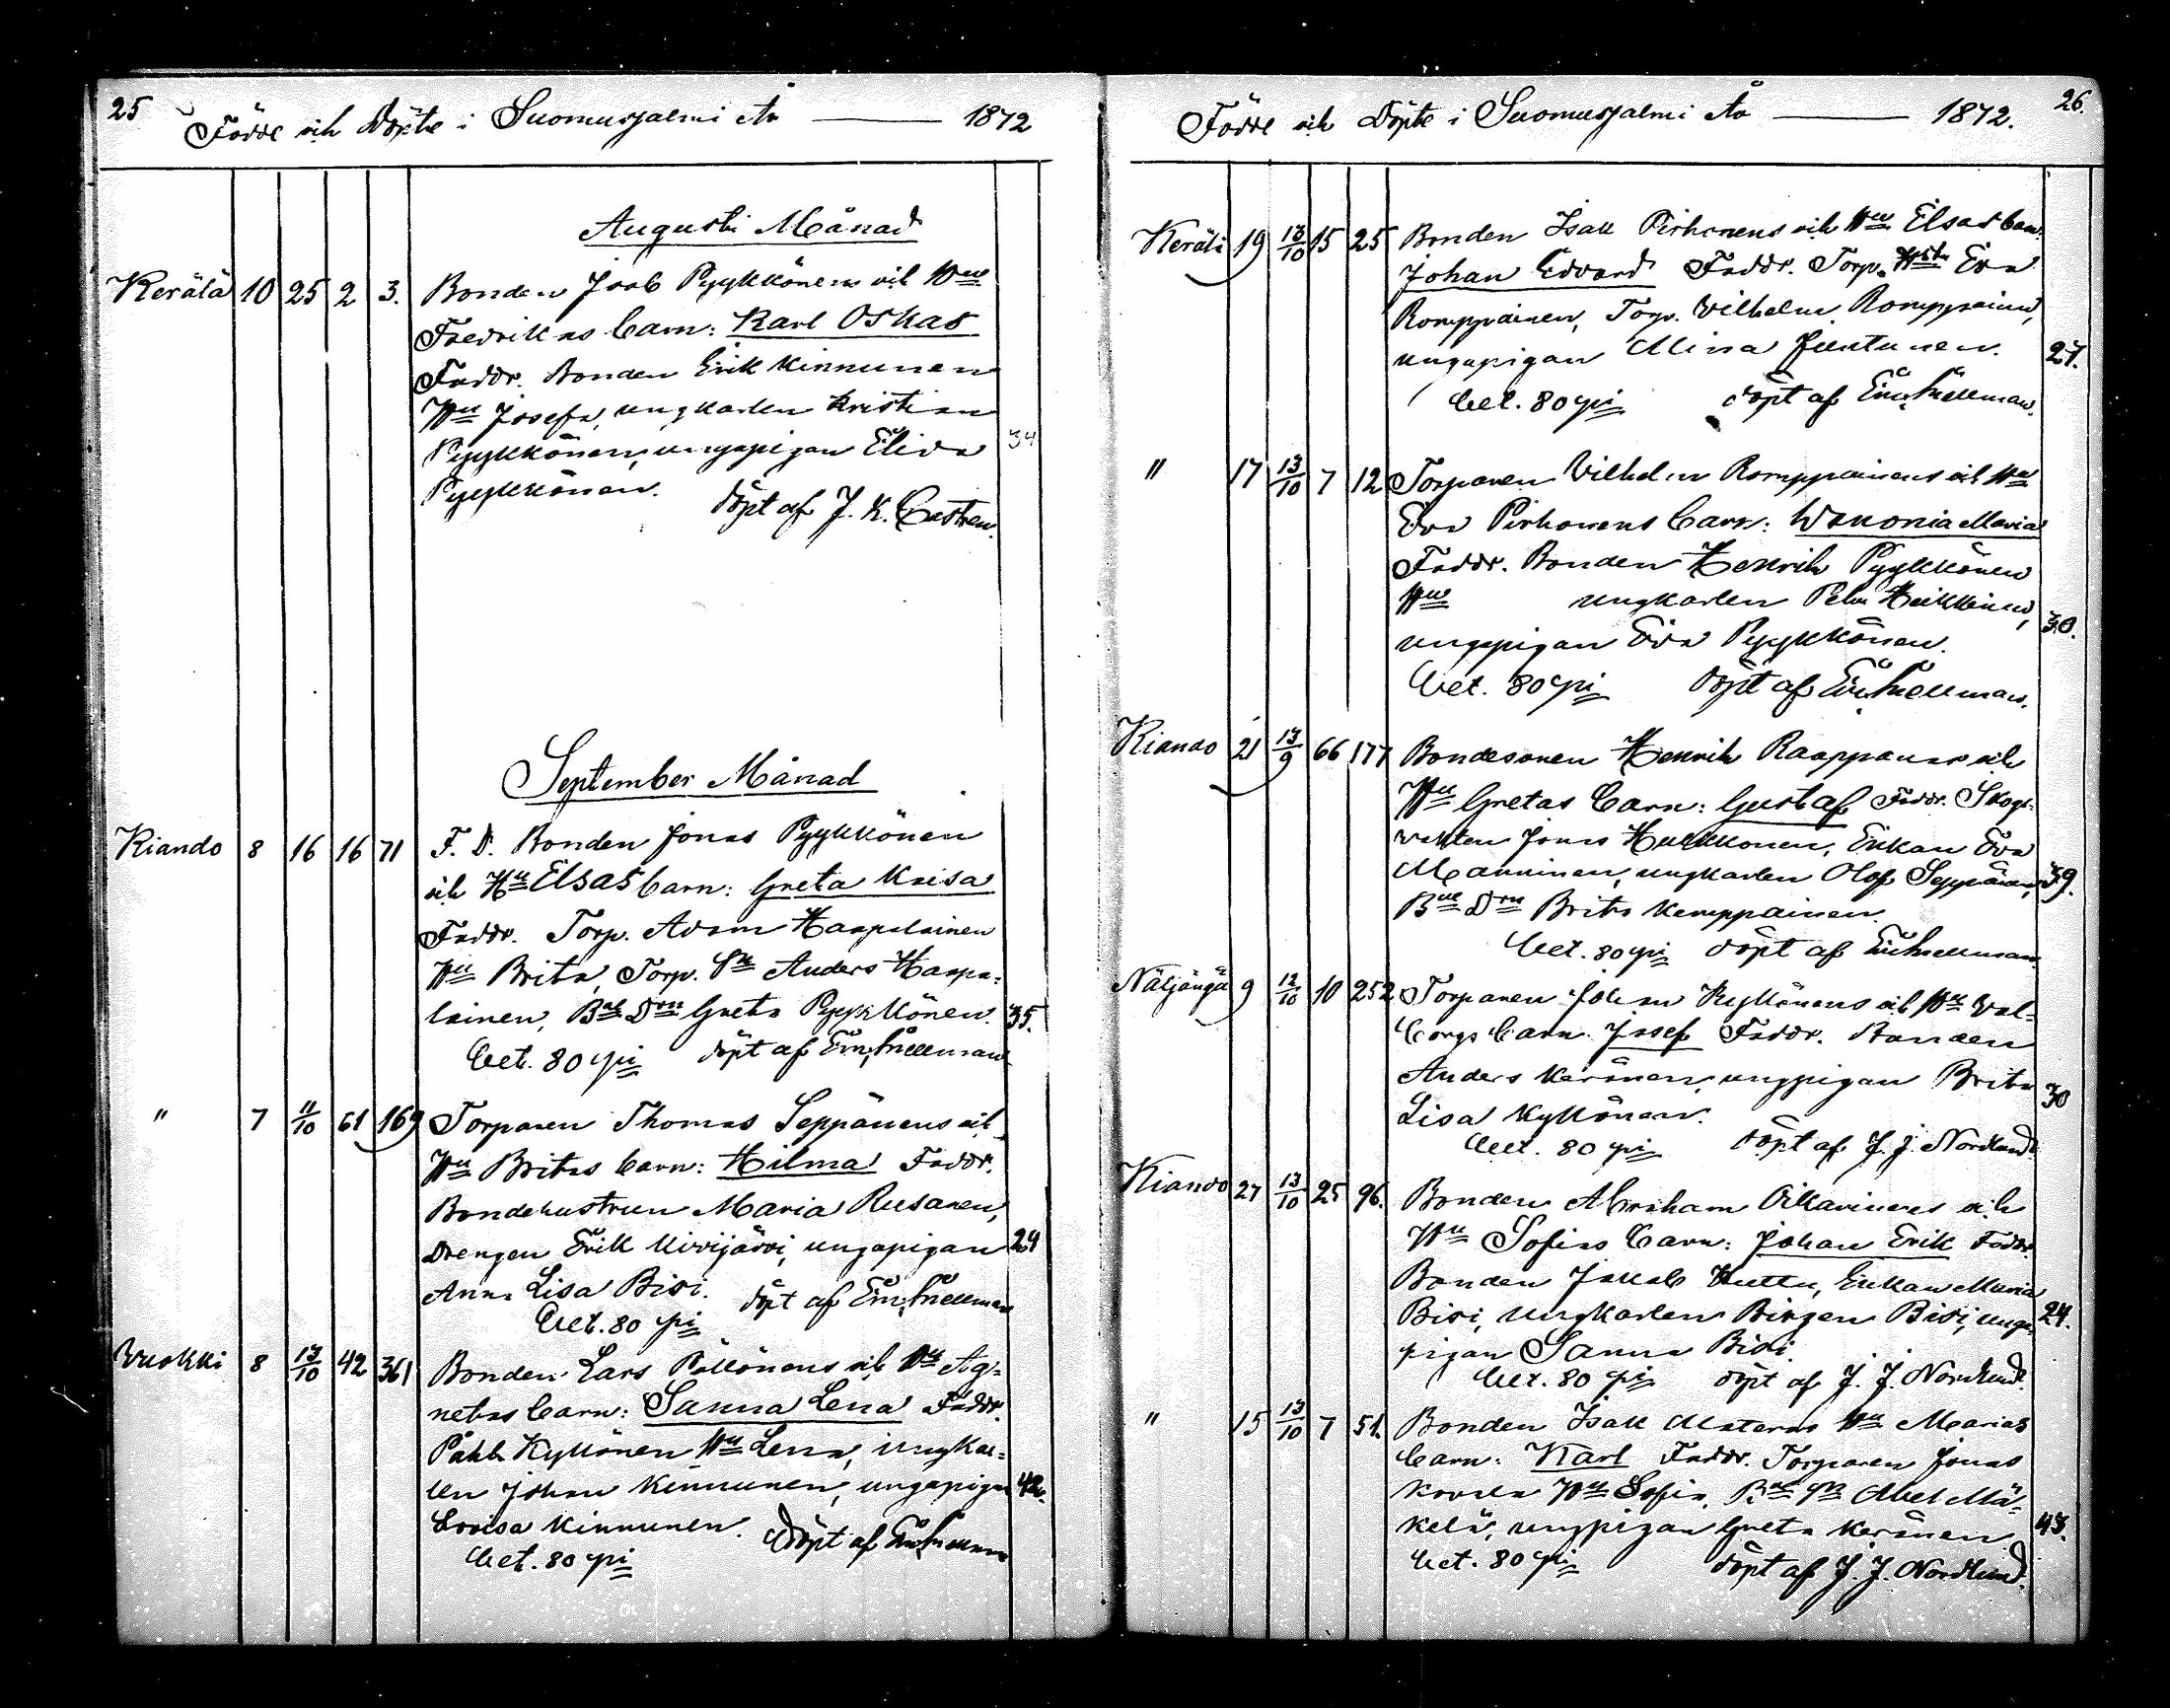 25 Födde och Döpte i Suomusjalmi År 1872
Augusti Månad
Kerälä 10 25 2 3. Bonden Joab Pyykkönens och Hu
Fredrikas barn: Karl Oskar
Faddr. Bonden Erik Kinnunen
Hu Josefa, ungkarlen Kristian
Pyykkönen, ungapigan Elida 34
Pyykkönen.
döpt af J. K. Castren.
September Månad
Kiando 8 16 16 71 F. D. Bonden Jonas Pyykkönen
och Hu Elsas barn: Greta Kaisa
Faddr. Torp. Adam Haapalainen
Hu Brita, Torp. Sn Anders Haapa-
lainen, Bde Dru Greta Pyykkönen. 35.
bet. 80 pi döpt af
" 7 11/10 61 169 Torparen Thomas Seppänens och
Hu Britas barn: Hilma Faddr.
Bondehustrun Maria Rusanen,
Drengen Erik Kivijärvi, ungapigan 29
Anna Lisa Bisi.
bet. 80 pi döpt af
Vuokki 8 13/10 42 361 Bonden Lars Pöllönens och Hu Ag-
netas barn: Sanna Lena Faddr.
Påhl Kyllönen Hu Lena, ungkar-
len Johan Kinnunen, ungapigan 42.
Lovisa Kinnunen.
bet. 80 pi Döpt af
26. Födde och Döpte i Suomusjalmi År 1872.
Kerälä 19 13/10 15 25 Bonden Isak Pirhonens och Hu Elsas barn:
Johan Edvard Faddr. Torp. Eva
Romppainen, Torp. Vilhelm Romppainen,
ungapigan Mina Juntunen. 27.
bet. 80 pi döpt af
" 17 13/10 7 12 Torparen Vilhelm Romppainens och Hu
Eva Pirhonens barn: Maria
Faddr. Bonden Henrik Pyykkönen
Hu ungkarlen Petr Heikkinen,
ungapigan Eva Pyykkönen. 30.
bet. 80 pi döpt af
Kiando 21 13/9 66 177 Bondesonen Henrik Raappanas och
Hu Gretas barn: Gustaf Faddr. Skogs-
vakten Jonas Hulkkonen, Enkan Eva
Manninen, ungkarlen Olof Seppänen, 39.
Bde Dru Brita Kemppainen.
bet. 80 pi döpt af
Näljängä 9 12/10 10 252 Torparen Johan Kyllönens och Hu Val-
borgs barn Josef Faddr. Bonden
Anders Keränen, ungpigan Brita 30
Lisa Kyllönen.
bet. 80 pi döpt af J. J. Nordlund.
Kiando 27 13/10 25 96. Bonden Abraham Oikarinens och
Hu Sofias barn: Johan Erik Faddr.
Bonden Jakob Huttu, Enkan Maria
Bisi, ungkarlen Birger Bisi, unga- 24.
pigan Sanna Bisi.
bet. 80 pi döpt af J. J. Nordlund.
" 15 13/10 7 51. Bonden Isak Hu Marias
barn: Karl Faddr. Torparen Jonas
Hu Sofia, Bde Sn Abel Mä-
kelä, ungpigan Greta Keränen 43.
bet. 80 pi döpt af J. J. Nordlund.